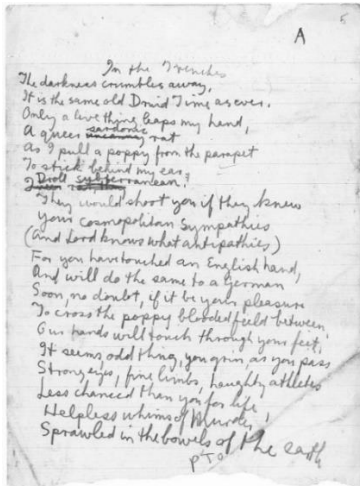 5
A
In the Trenches
The darkness crumbles away,
It is the same old Druid Time as ever.
Only a live thing leaps my hand,
A queer sardonic rat
As I pull a poppy from the parapet
To stick behind my ear.
Droll subterranean?
They would shoot you if they knew
Your cosmopolitan sympathies
(And Lord knows what antipathies)
For you have touched an English hand,
And will do the same to a German
Soon, no doubt, if it be your pleasure
To cross the poppy blooded field between,
Our hands will touch through your feet,
It seems, odd thing, you grin, as you pass
Strong eyes, fine limbs, haughty athletes
Less chanced than you for life,
Helpless whims of Murder,
Sprawled in the bowels of the earth
PTO